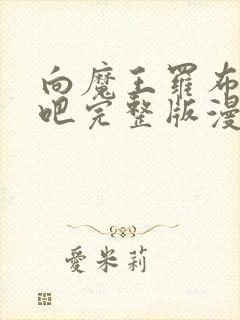 向魔王罗布
吧完整版漫
爱米莉